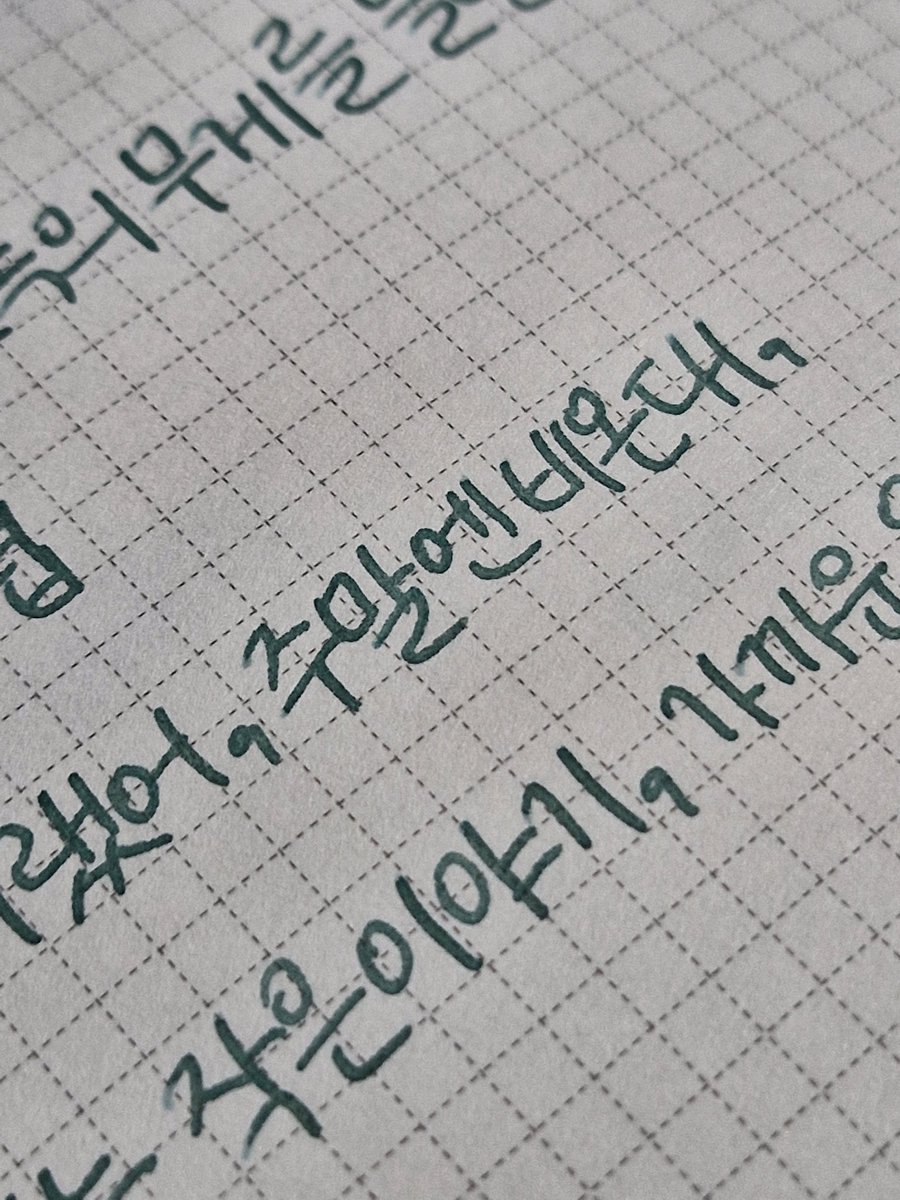 무게를
컵
랬어, 주말엔 비 온대,
작은 이야기, 가까운